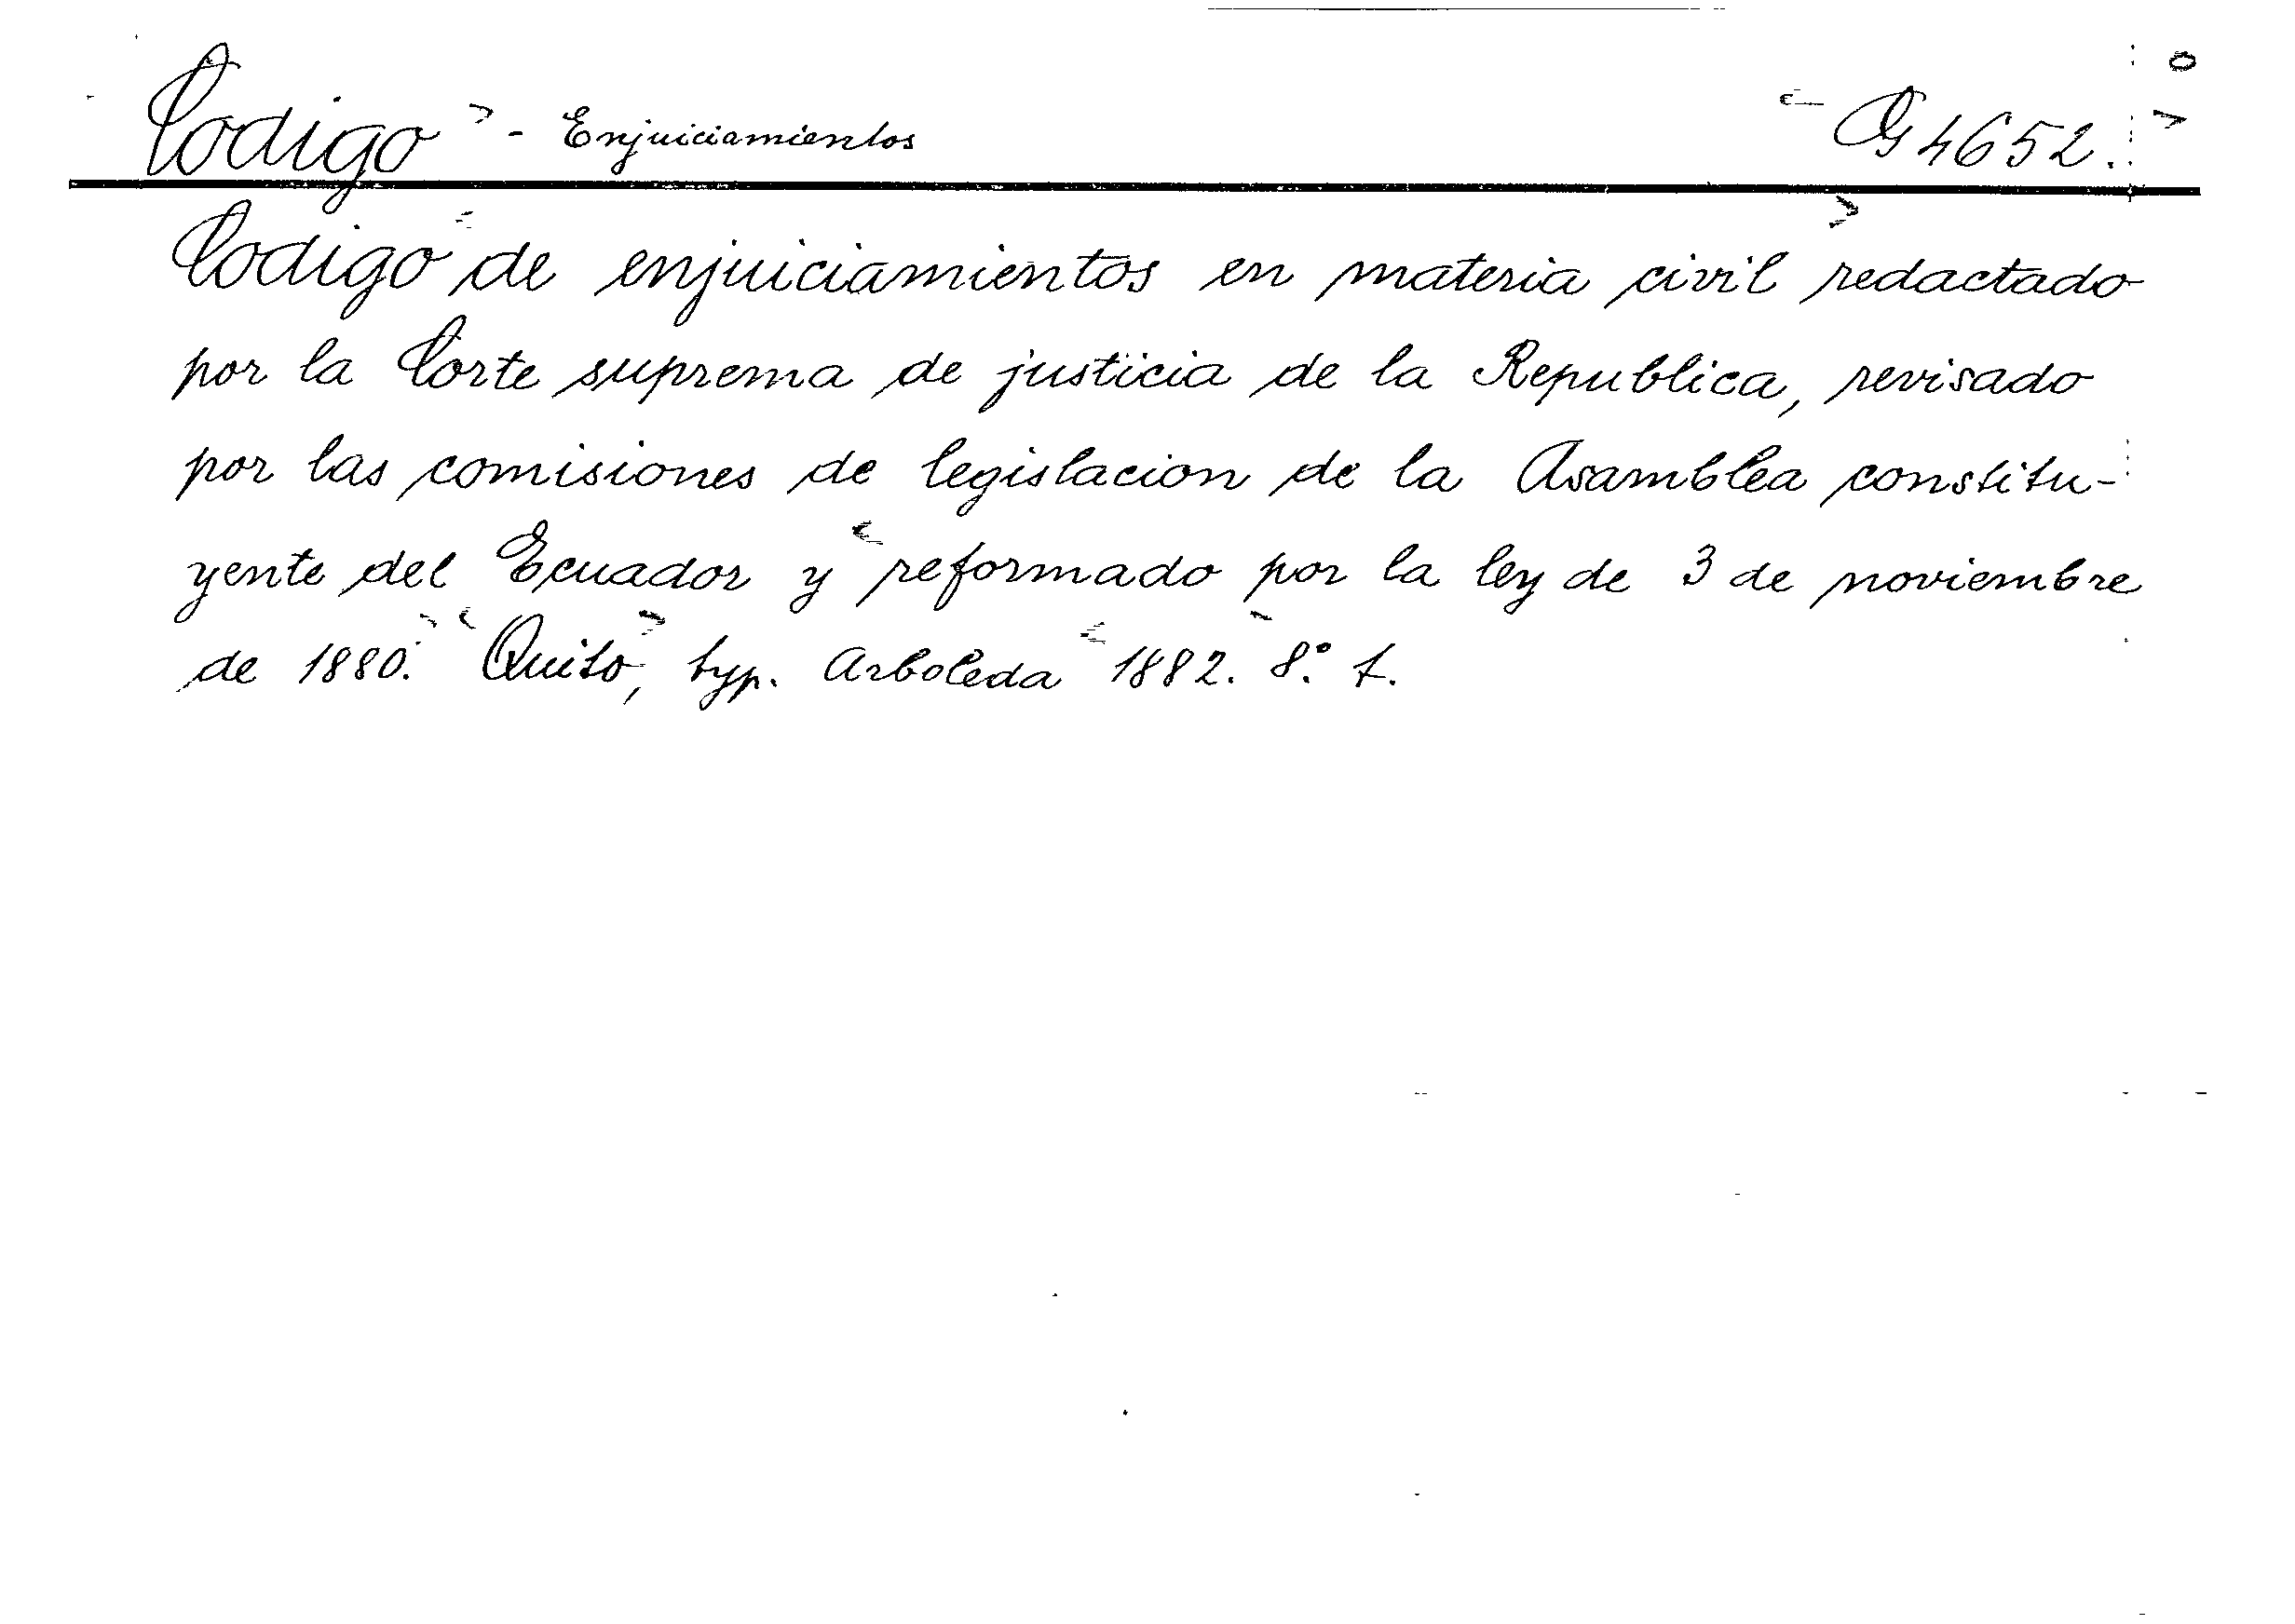 Codigo - Enjuiciamientos G 4652.
Codigo de enjuiciamientos en materia civil redactado
por la Corte suprema de justicia de la Republica, revisado
por las comisiones de legislacion de la Asamblea constitu-
yente del Ecuador y reformado por la ley de 3 de noviembre
de 1880. Quito, typ. Arboleda 1882. 8.° t.